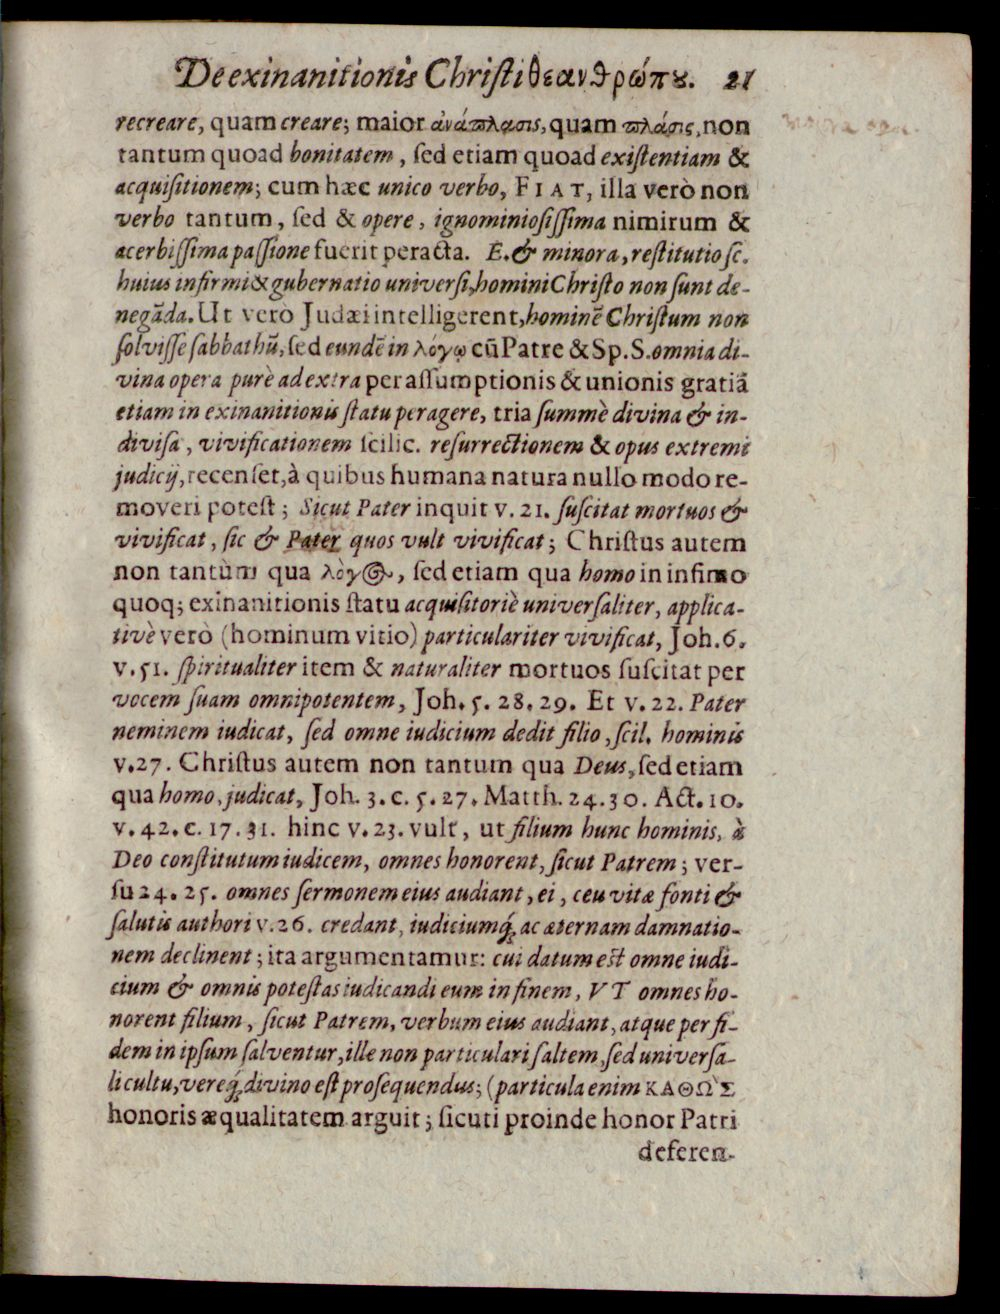 De exinanitionis Christi θεανθρώπȣ. 21
recreare, quam creare; maior ἀνάπλασις, quam πλάσις, non
tantum quoad bonitatem, ſed etiam quoad exiſtentiam &
acquiſitionem; cum hæc unico verbo, FIAT, illa verò non
verbo tantum, ſed & opere, ignominioſiſſima nimirum &
acerbiſſima paſſione fuerit peracta. E. & minora, reſtitutio ſc.
huius infirmi & gubernatio univerſi, homini Chriſto non ſunt de-
negãda. Ut verò Judæi intelligerent, hominẽ Chriſtum non
ſolviſſe ſabbathũ, ſed eundẽ in λόγῳ cũ Patre & Sp. S. omnia di-
vina opera purè ad extra per aſſumptionis & unionis gratiã
etiam in exinanitionis ſtatu peragere, tria ſummè divina & in-
diviſa, vivificationem ſcilic. reſurrectionem & opus extremi
judicij, recenſet, à quibus humana natura nullo modo re-
moveri poteſt; Sicut Pater inquit v. 21. ſuſcitat mortuos &
vivificat, ſic & Pater quos vult vivificat; Chriſtus autem
non tantùm qua λόγος, ſed etiam qua homo in infimo
quoq; exinanitionis ſtatu acquiſitoriè univerſaliter, applica-
tivè verò (hominum vitio) particulariter vivificat, Joh. 6.
v. 51. ſpiritualiter item & naturaliter mortuos ſuſcitat per
vocem ſuam omnipotentem, Joh. 5. 28. 29. Et v. 22. Pater
neminem iudicat, ſed omne iudicium dedit filio, ſcil. hominis
v. 27. Chriſtus autem non tantum qua Deus, ſed etiam
qua homo, judicat, Joh. 3. c. 5. 27. Matth. 24. 30. Act. 10.
v. 42. c. 17. 31. hinc v. 23. vult, ut filium hunc hominis, à
Deo conſtitutum iudicem, omnes honorent, ſicut Patrem; ver-
ſu 24. 25. omnes ſermonem eius audiant, ei, ceu vitæ fonti &
ſalutis authori v. 26. credant, iudiciumq́; ac æternam damnatio-
nem declinent; ita argumentamur: cui datum eſt omne iudi-
cium & omnis poteſtas iudicandi eum in finem, VT omnes ho-
norent filium, ſicut Patrem, verbum eius audiant, atque per fi-
dem in ipſum ſalventur, ille non particulari ſaltem, ſed univerſa-
li cultu, vereq́; divino eſt proſequendus; (particula enim ΚΑΘΩ`Σ
honoris æqualitatem arguit; ſicuti proinde honor Patri
deferen-